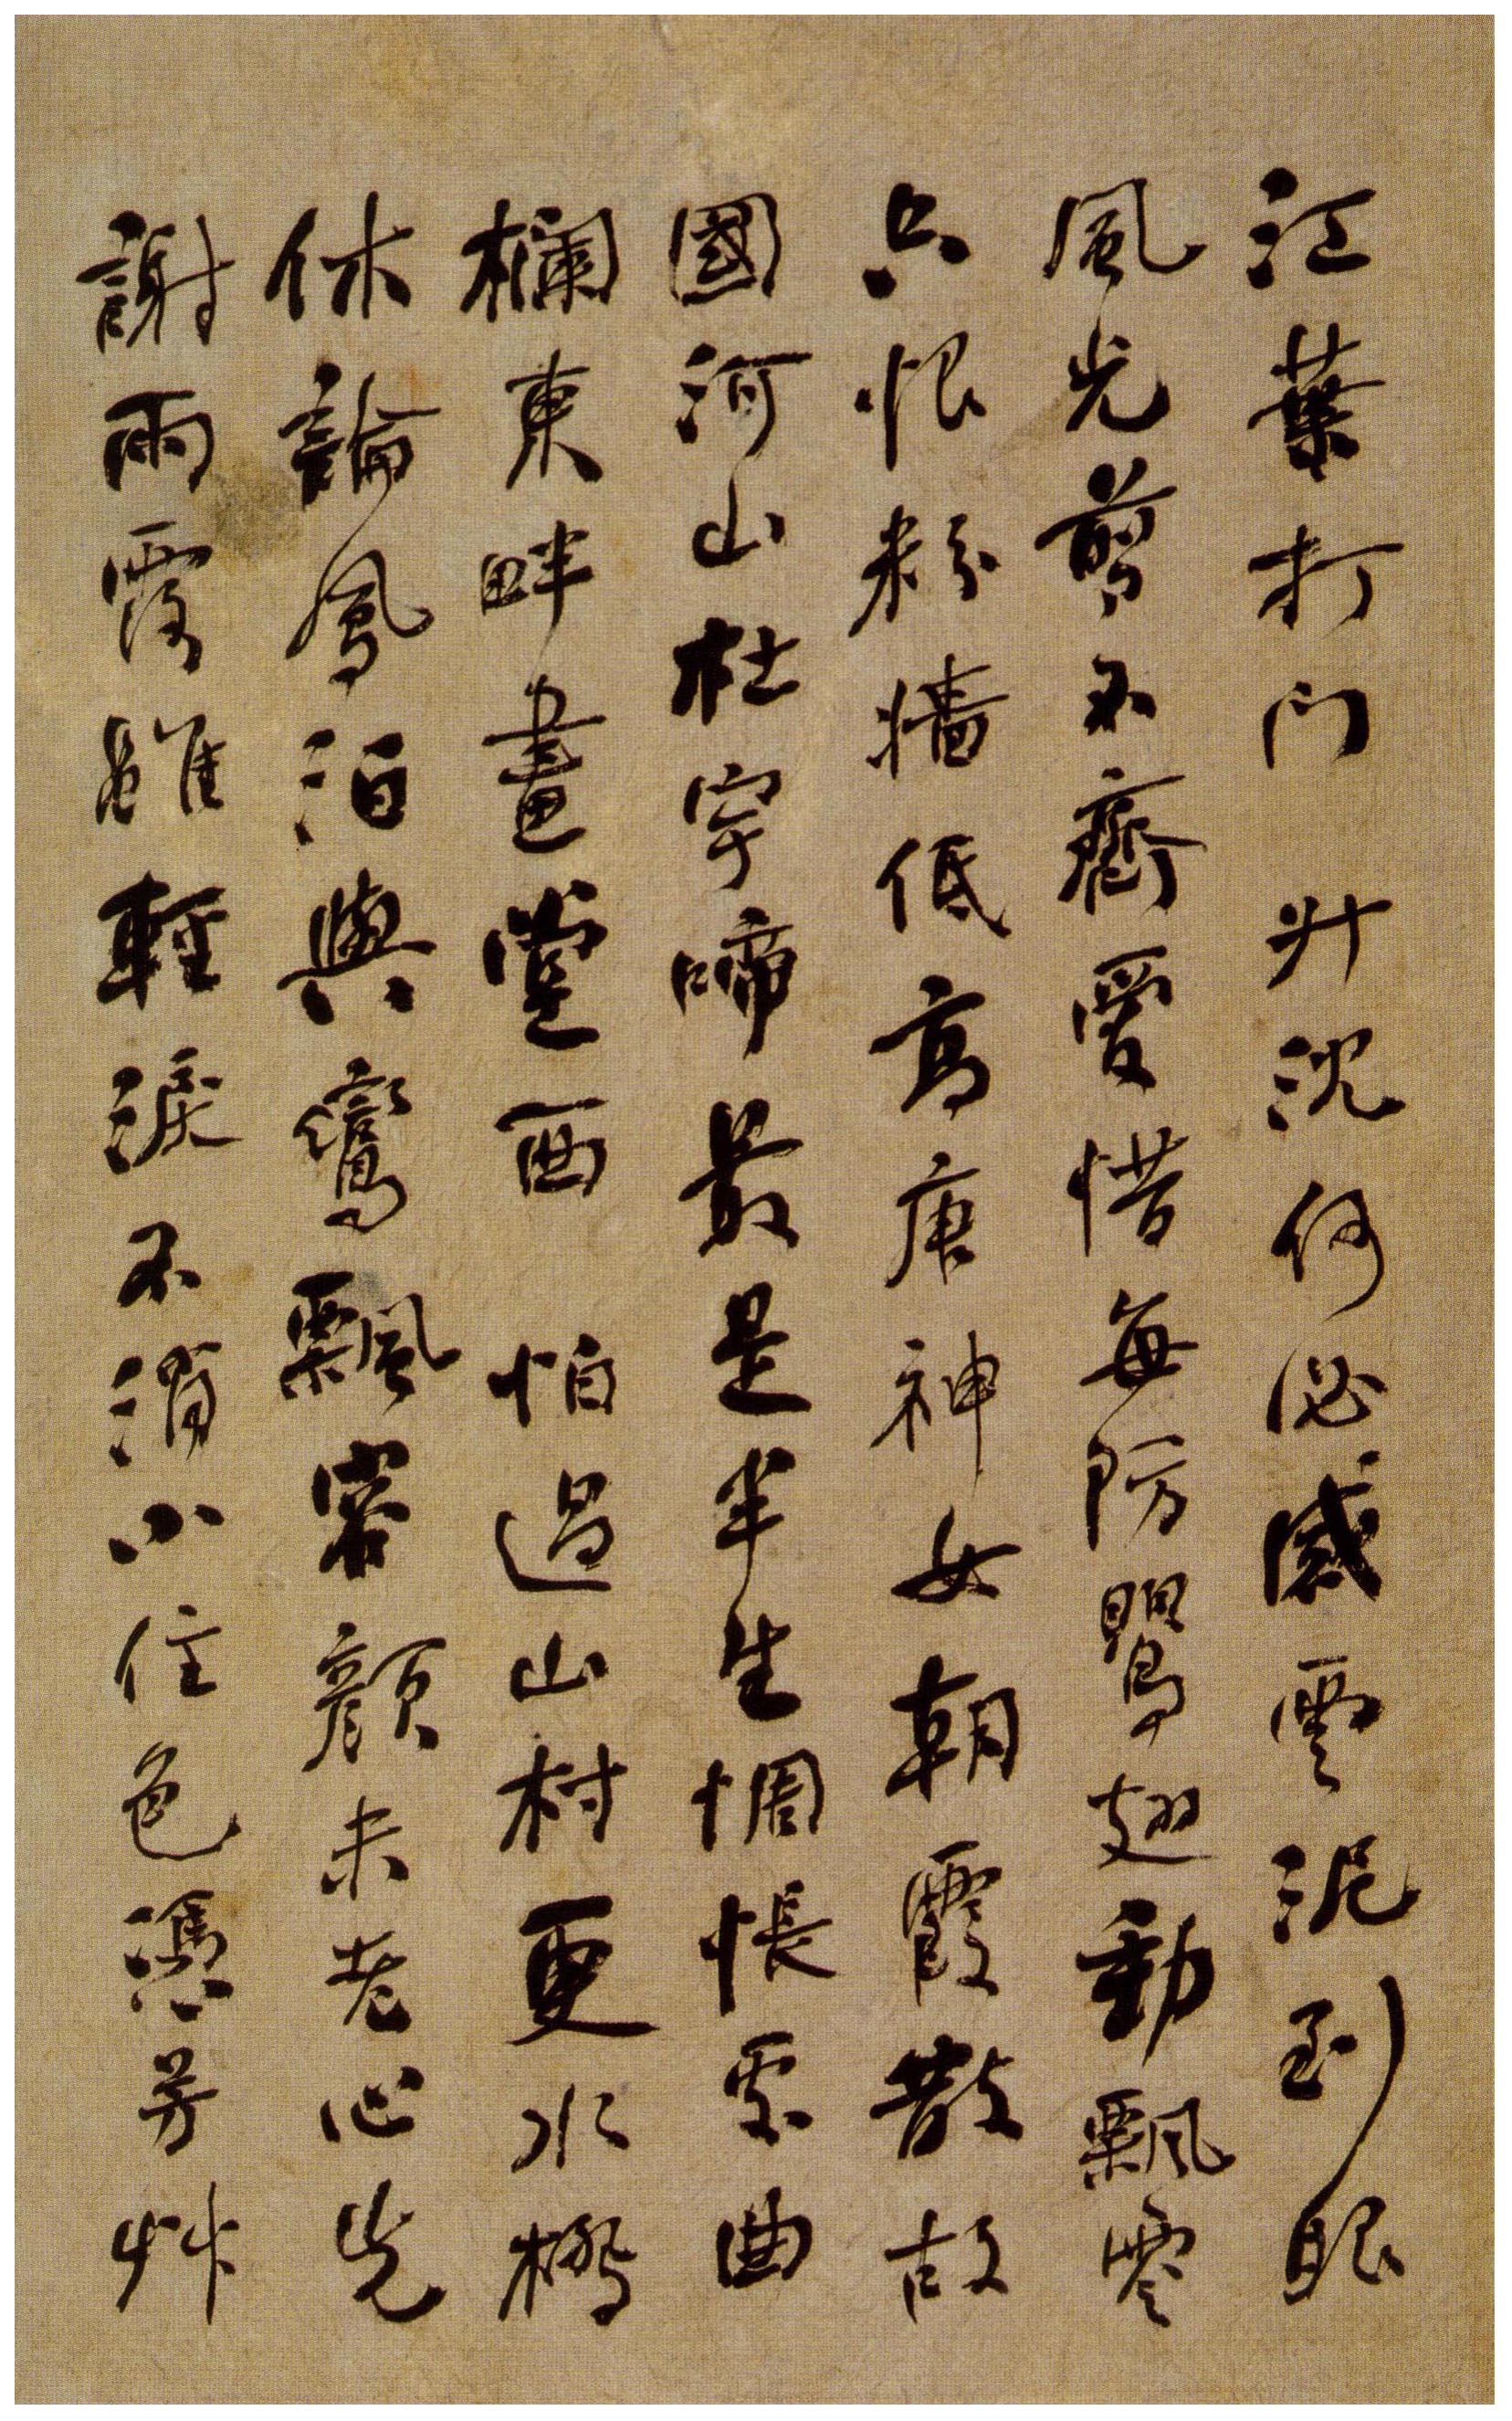 江葉打門 升沈何必感雲泥到眼
風光剪不齊愛惜每防鸎翅動飄零
只恨粉牆低高唐神女朝霞散故
國河山杜宇啼最是半生惆悵處曲
欄東畔畫堂西 怕過山村更水橋
休論鳳泊與鸞飄容顏未老心先
謝雨露雖輕淚不消小住色憑芳艸